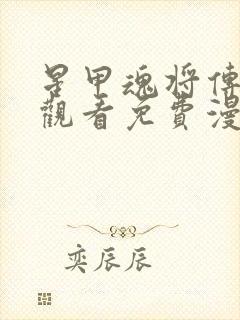 星甲魂將傳
觀看免費漫
奕辰辰